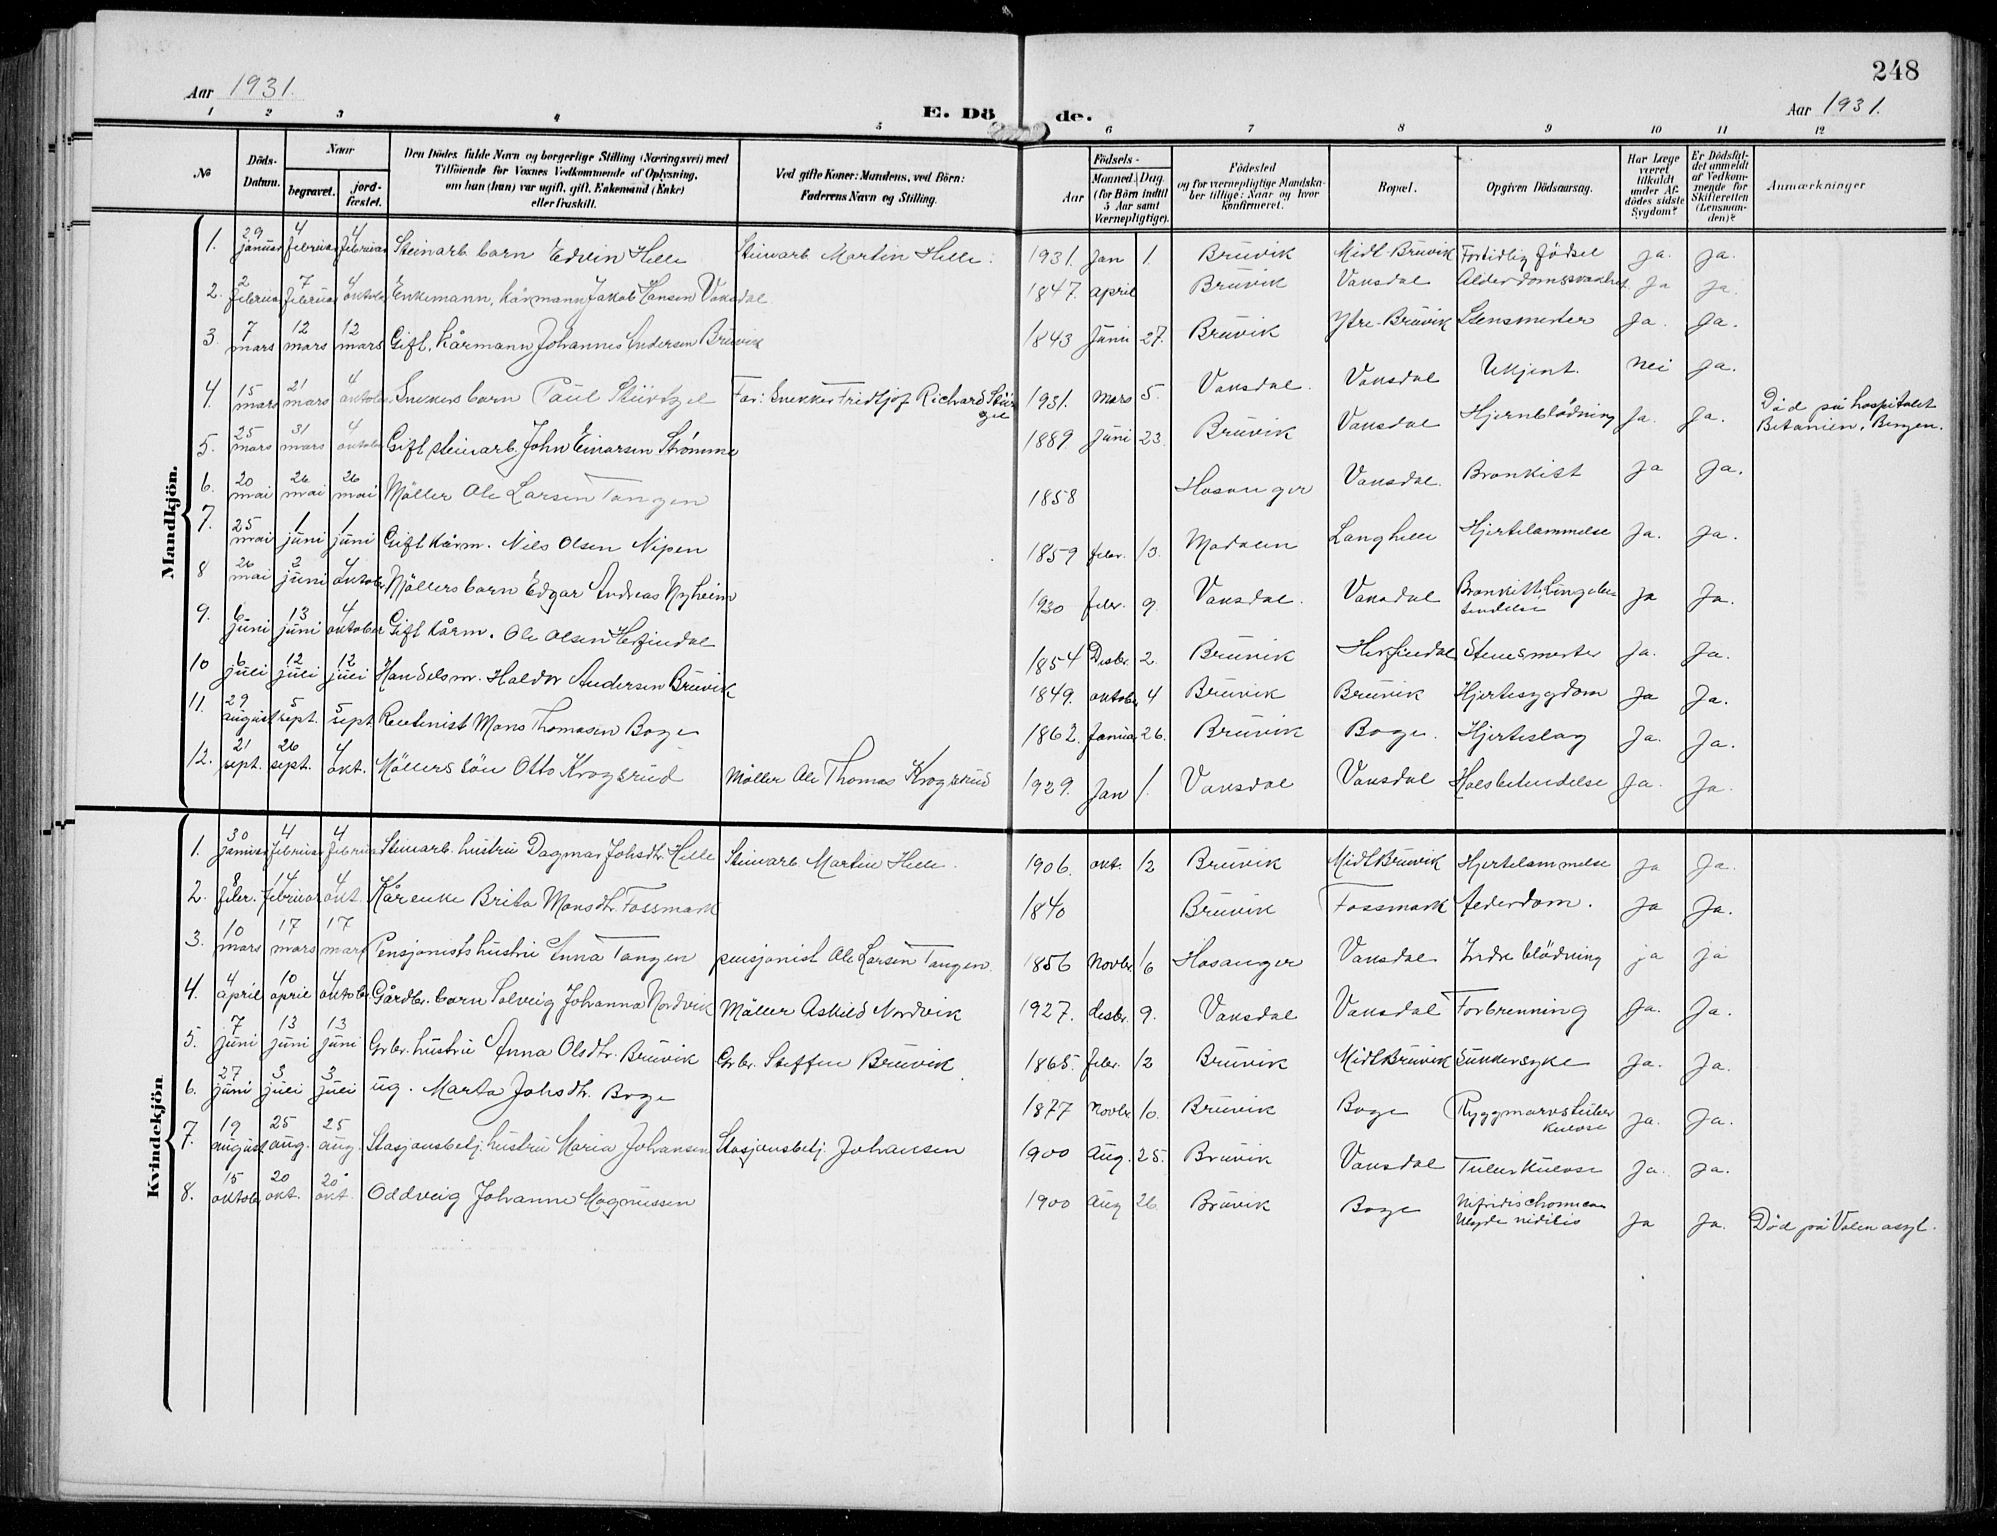 248
Aar 1931.
Aar 1931.
E. Döde.
1 2 3 4 5 6 7 8 9 10 11 12
No
Döds-Datum.
Naar
begravet.
jord-fæstet.
Den Dödes fulde Navn og borgerlige Stilling (Næringsvei) med Tilföiende for Voxnes Vedkommende af Oplysning, om han (hun) var ugift, gift, Enkemand (Enke) eller fraskilt.
Ved gifte Koner: Mandens, ved Börn: Faderens Navn og Stilling.
Födsels-
Aar
Maaned. Dag.
(for Börn indtil 5 Aar samt Værnepligtige).
Födested og for værnepligtige Mandskaber tillige: Naar og hvor konfirmeret.
Bopæl.
Opgiven Dödsaarsag.
Har Læge været tilkaldt under Afdödes sidste Sygdom?
Er Dödsfaldet anmeldt af Vedkommende for Skifteretten (Lensmanden)?
Anmærkninger
Mandkjön.
1. 29 januar 4 februar 4 februar Steinarb. barn Edvin Helle Steinarb Martin Helle. 1931. Jan 1. Bruvik Midl-Bruvik Fortidlig födsel ja. ja.
2. 2 februar 7 februar 4 oktober Enkemann, kårmann Jakob Hansen Vaksdal 1847. april Bruvik Vaksdal Alderdomssvakhet Ja ja.
3. 7 mars 12 mars 12 mars Gift. Kårmann Johannes Andersen Bruvik 1843 Juni 27. Bruvik Ytre-Bruvik Stensmerter Ja. Ja.
4. 15 mars 21 mars 4 oktober Snekkers barn Paul Stürtzel Far: Snekker Fridtjof Richard Stürtzel 1931. Mars 5. Vaksdal. Vaksdal Ukjent. Nei Ja.
5. 25 mars 31 mars 4 oktober Gift steinarb. John Einarsen Strømme 1889. Juni 23. Bruvik Vaksdal Hjernblödning Ja. Ja. Død på hospitalet Betanien, Bergen.
6. 20 mai 26 mai 26 mai Möller Ole Larsen Tangen 1858 Hosanger Vaksdal. Bronkist ja Ja.
7. 25 mai 1 juni 1 juni Gift kårm. Nils Olsen Nipen 1859 febr. 13. Modalen Langhelle Hjertelammelse Ja. Ja.
8 26 mai 2 juni 4 oktober Möllers barn Edgar Andreas Nyheim 1930 febr. 9. Vaksdal. Vaksdal Bronkitt, Lungebetendelse Ja Ja.
9. 6 juni 13 juni 4 oktober Gift kårm. Ole Olsen Herfindal 1854 Desbr. 2. Bruvik Herfindal Stensmerter Ja. Ja.
10 6 juli 12 juli 12 juli Handelsm. Haldor Andersen Bruvik 1849. oktober 4 Bruvik Bruvik Hjertesygdom Ja Ja.
11. 29 august 5 sept. 5 sept. Rentenist Mons Thomasen Boge 1862. Januar 26. Bruvik Boge. Hjerteslag Ja. Ja.
12. 21 sept. 26 sept. 4 okt. Möllers sön Otto Krogsrud Möller Ole Thomas Krogsrud 1929. Jan 1. Vaksdal Vaksdal Halsbetendelse Ja. Ja.
Kvindekjön
1. 30 januar 4 februar 4 februar Steinarb. hustru Dagmar Johsdtr. Helle Steinarb Martin Helle. 1906. okt. 12 Bruvik Midl Bruvik Hjertelammelse ja Ja.
2. 8 febr. 14 februar 4 okt. Kårenke Brita Monsdtr. Fossmark 1840 Bruvik Fossmark Alderdom. Ja Ja.
3. 10 mars 17 mars 17 mars Pensjonists hustru Anna Tangen pensjonist Ole Larsen Tangen. 1856 Novbr. 16 Hosanger Vaksdal Indre blödning ja ja
4. 4 april 10 april 4 oktober Gårdbr. barn Solveig Johanna Nordvik Möller Askild Nordvik 1927. desbr. 9. Vaksdal Vaksdal Forbrenning Ja. Ja.
5. 7 juni 13 juni 13 juni Grbr. hustru Anna Olsdtr. Bruvik Grbr. Steffen Bruvik 1865. febr. 12 Bruvik Midl Bruvik Sukkersyke Ja. Ja.
6. 27 juni 3 juli 3 juli ug. Marta Johsdtr. Boge 1877 Novbr. 10. Bruvik Boge Ryggmarvstuberkulose Ja. Ja.
7. 19 august 25 aug. 25 aug. Stasjonsbetj. hustru Maria Johansen Stasjonsbetj. Johansen 1900 Aug. 25. Bruvik Vaksdal Tuberkulose Ja. Ja.
8. 15 oktober 20 okt. 20 okt. Oddveig Johanne Magnussen 1900 Aug 26. Bruvik Boge Ja Ja. Død på Valen asyl.